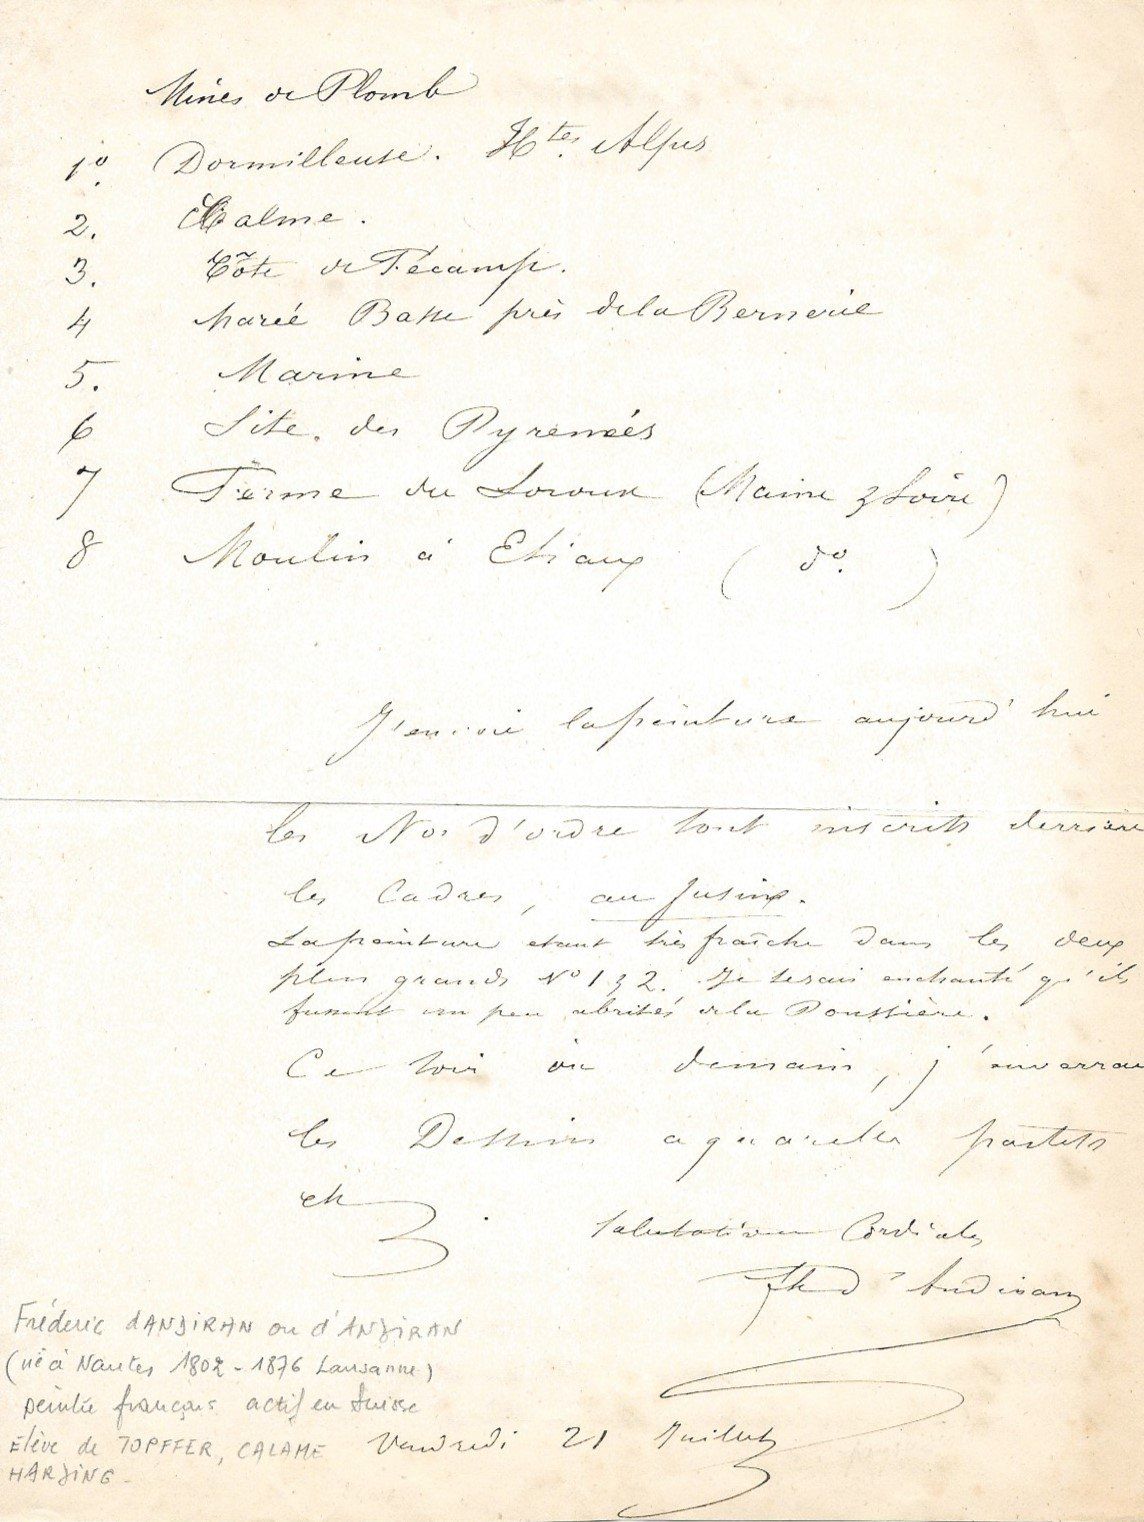 Mines de Plomb
1º. Dormilleuse. Htes. Alpes
2. Calme.
3. Côte de Fécamp.
4 Marée Basse près de la Bernerie
5. Marine
6 Site des Pyrenées
7 Ferme du Loroux (Maine & Loire)
8 Moulin à Etiaux (dº.)
J'envoie la peinture aujourd'hui
les Nos d'ordre sont inscrits derrière
les Cadres, au fusain.
La peinture etant très fraîche dans les deux
plus grands Nº 1 & 2. Je serais enchanté qu'ils
fussent un peu abrités de la Poussière.
Ce soir ou demain, j'enverrai
les Dessins aquarelles pastels
etc.
Salutations Cordiales
Fk d'Andiran
Frédéric dANDIRAN ou d'ANDIRAN
(né à Nantes 1802 - 1876 Lausanne)
peintre français actif en Suisse
Elève de TOPFFER, CALAME
HARDING -
Vendredi 21 Juillet